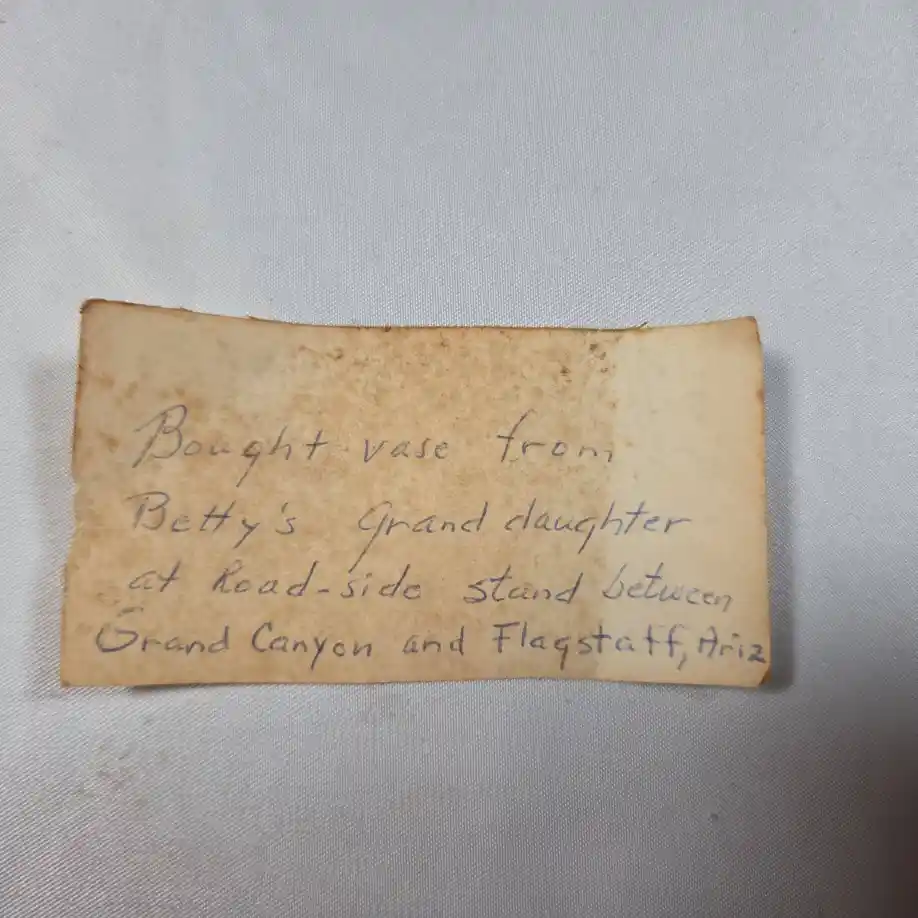 Bought vase from
Betty's Grand daughter
at Road-side stand between
Grand Canyon and Flagstaff, Ariz